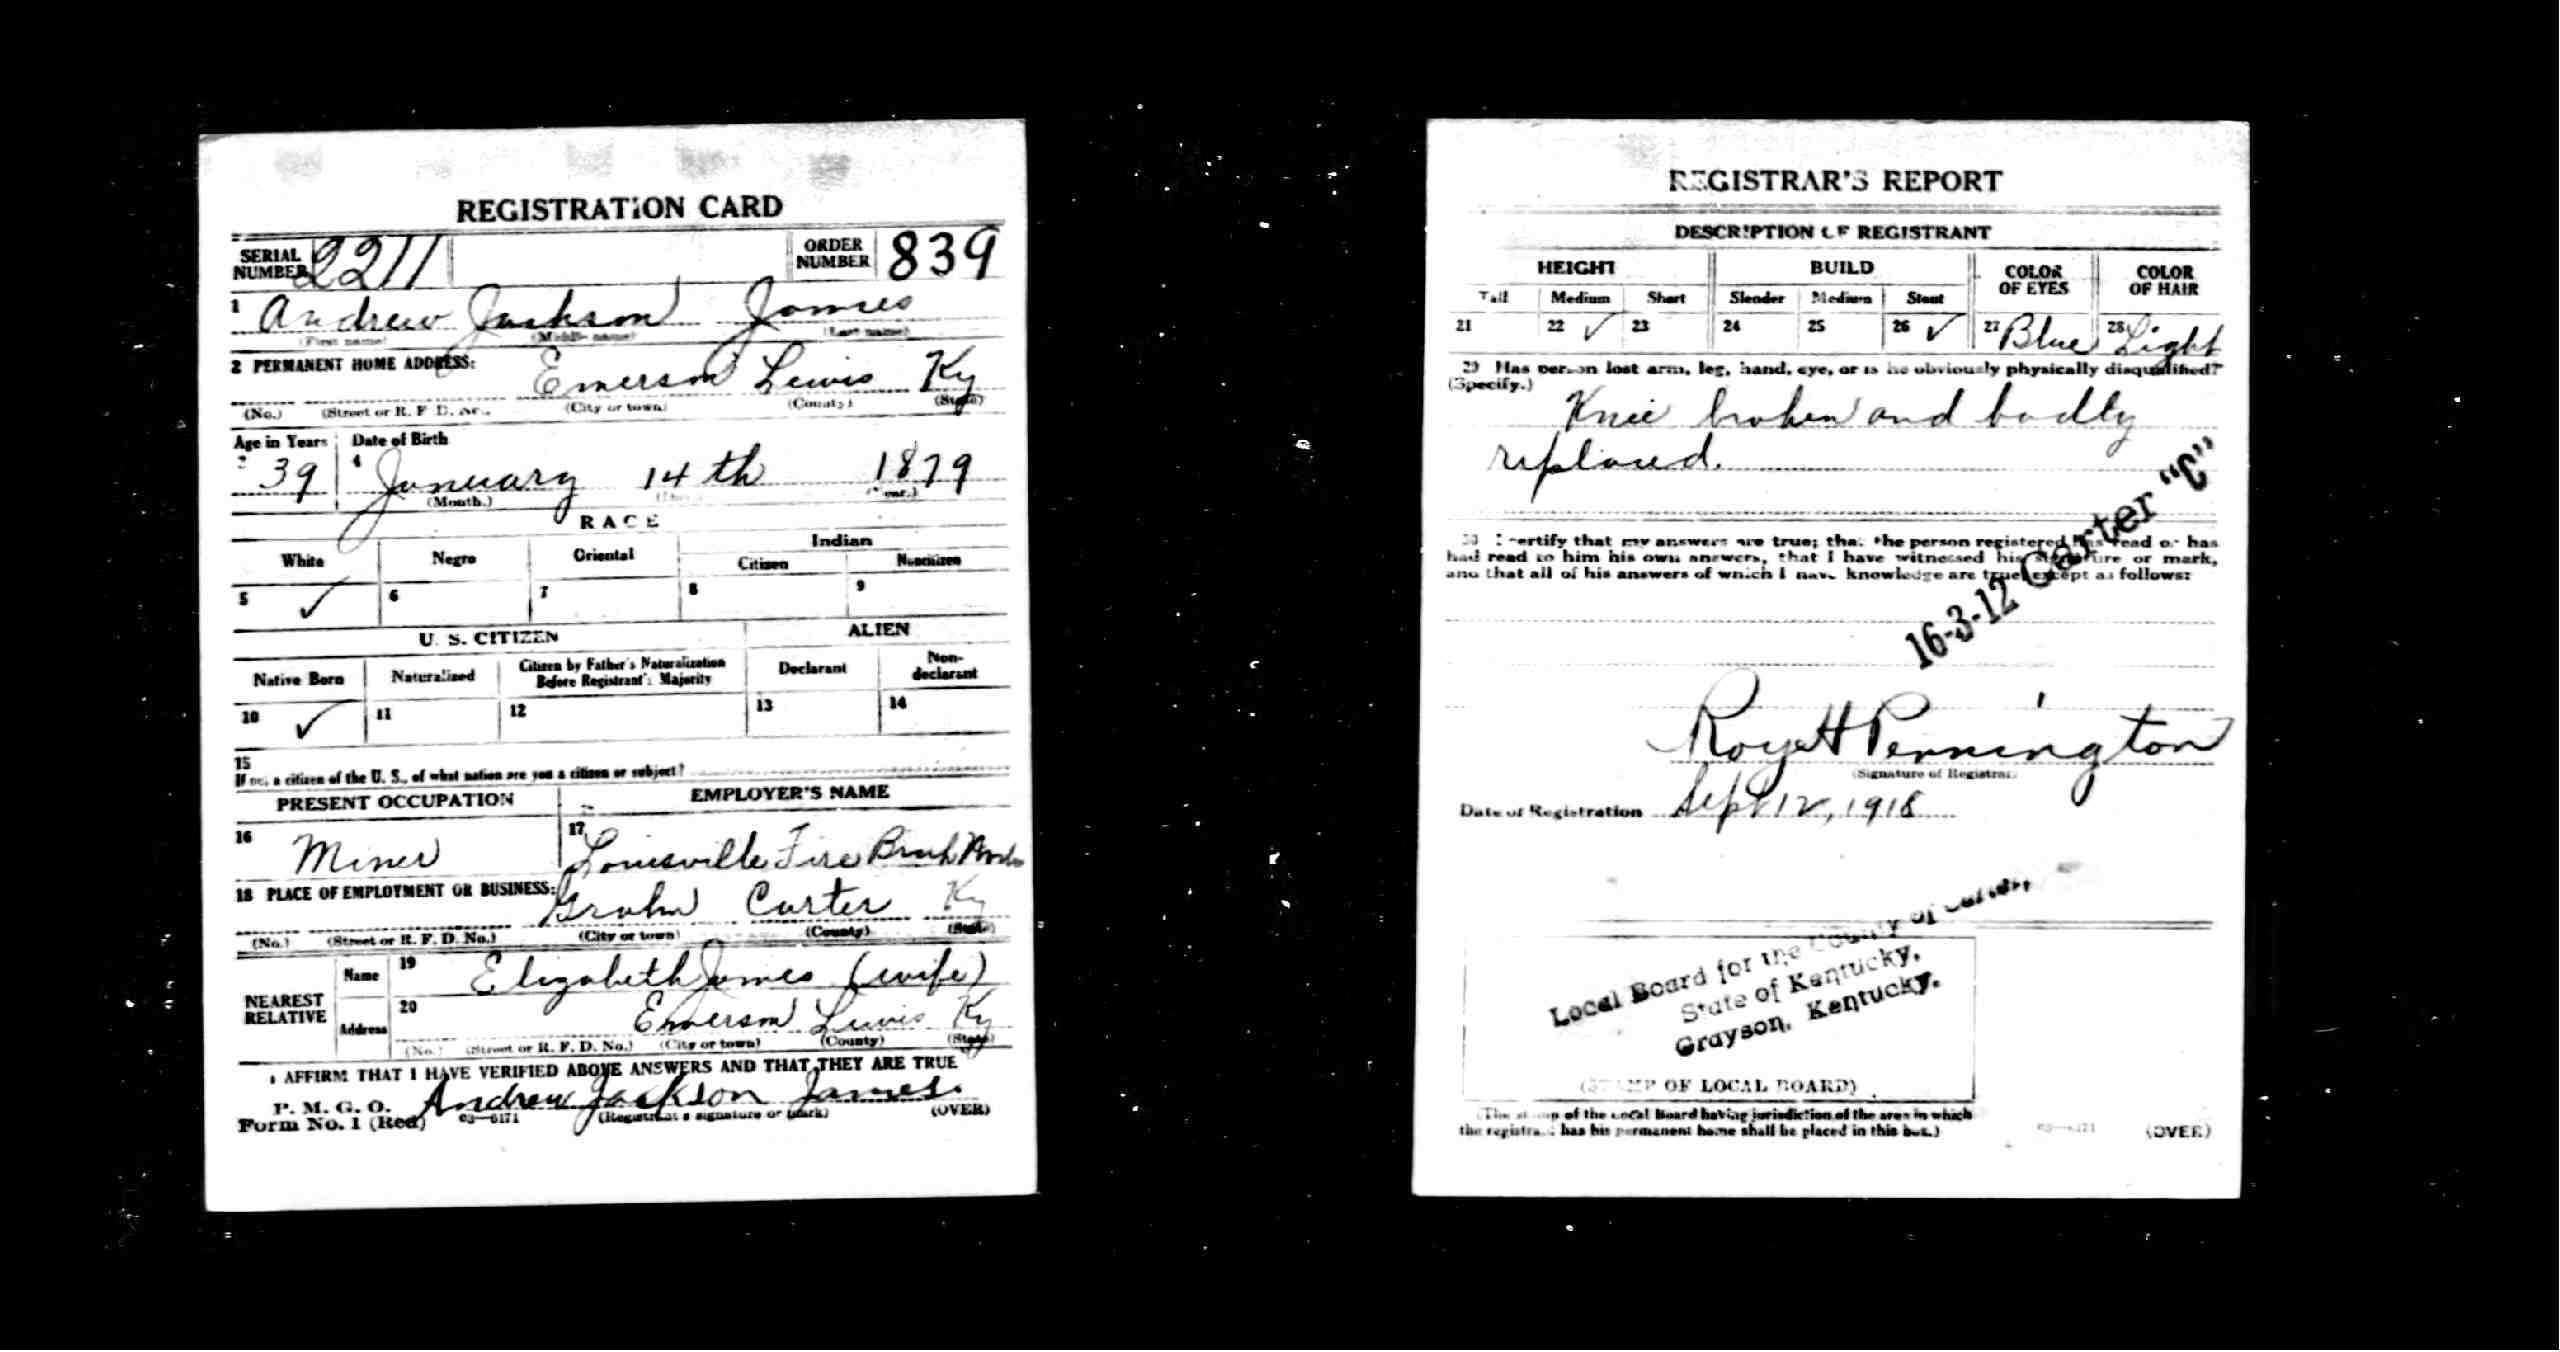 REGISTRATION CARD
SERIAL NUMBER 2211 ORDER NUMBER 839
1 Andrew Jackson James
(First name) (Middle name) (Last name)
2 PERMANENT HOME ADDRESS: Emerson Lewis Ky
(No.) (Street or R. F. D. No.) (City or town) (County) (State)
Age in Years Date of Birth
3 39 4 January 14th 1879
(Month.) (Day.) (Year.)
RACE
White Negro Oriental Indian
Citizen Noncitizen
5 ✓ 6 7 8 9
U. S. CITIZEN ALIEN
Native Born Naturalized Citizen by Father's Naturalization Before Registrant's Majority Declarant Non-declarant
10 ✓ 11 12 13 14
15
If not a citizen of the U. S., of what nation are you a citizen or subject?
PRESENT OCCUPATION EMPLOYER'S NAME
16 Miner 17 Louisville Fire Brick
18 PLACE OF EMPLOYMENT OR BUSINESS:
Grahn Carter Ky
(No.) (Street or R. F. D. No.) (City or town) (County) (State)
NEAREST RELATIVE Name 19 Elizabeth James (wife)
Address 20 Emerson Lewis Ky
(No.) (Street or R. F. D. No.) (City or town) (County) (State)
I AFFIRM THAT I HAVE VERIFIED ABOVE ANSWERS AND THAT THEY ARE TRUE
P. M. G. O. Andrew Jackson James.
Form No. 1 (Red) 03—6171 (Registrant's signature or mark) (OVER)
REGISTRAR'S REPORT
DESCRIPTION OF REGISTRANT
HEIGHT BUILD COLOR OF EYES COLOR OF HAIR
Tall Medium Short Slender Medium Stout
21 22 ✓ 23 24 25 26 ✓ 27 Blue 28 Light
29 Has person lost arm, leg, hand, eye, or is he obviously physically disqualified?
(Specify.)
Knee broken and badly
replaced.
30 I certify that my answers are true; that the person registered has read or has
had read to him his own answers, that I have witnessed his signature or mark,
and that all of his answers of which I have knowledge are true, except as follows:
16-3-12 Carter "C"
Roy H Pennington
(Signature of Registrar)
Date of Registration Sept 12, 1918
Local Board for the County of Carter,
State of Kentucky,
Grayson, Kentucky.
(STAMP OF LOCAL BOARD)
(The stamp of the Local Board having jurisdiction of the area in which
the registrant has his permanent home shall be placed in this box.)
03—6171 (OVER)